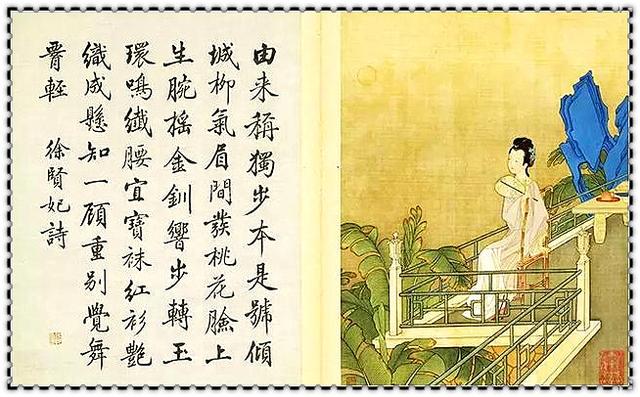 由来稱獨步本是號傾
城柳氣眉間發桃花臉上
生腕搖金釧響步轉玉
環鳴纖腰宜寶袜紅衫艷
織成懸知一顧重別覺舞
輕
徐賢妃詩